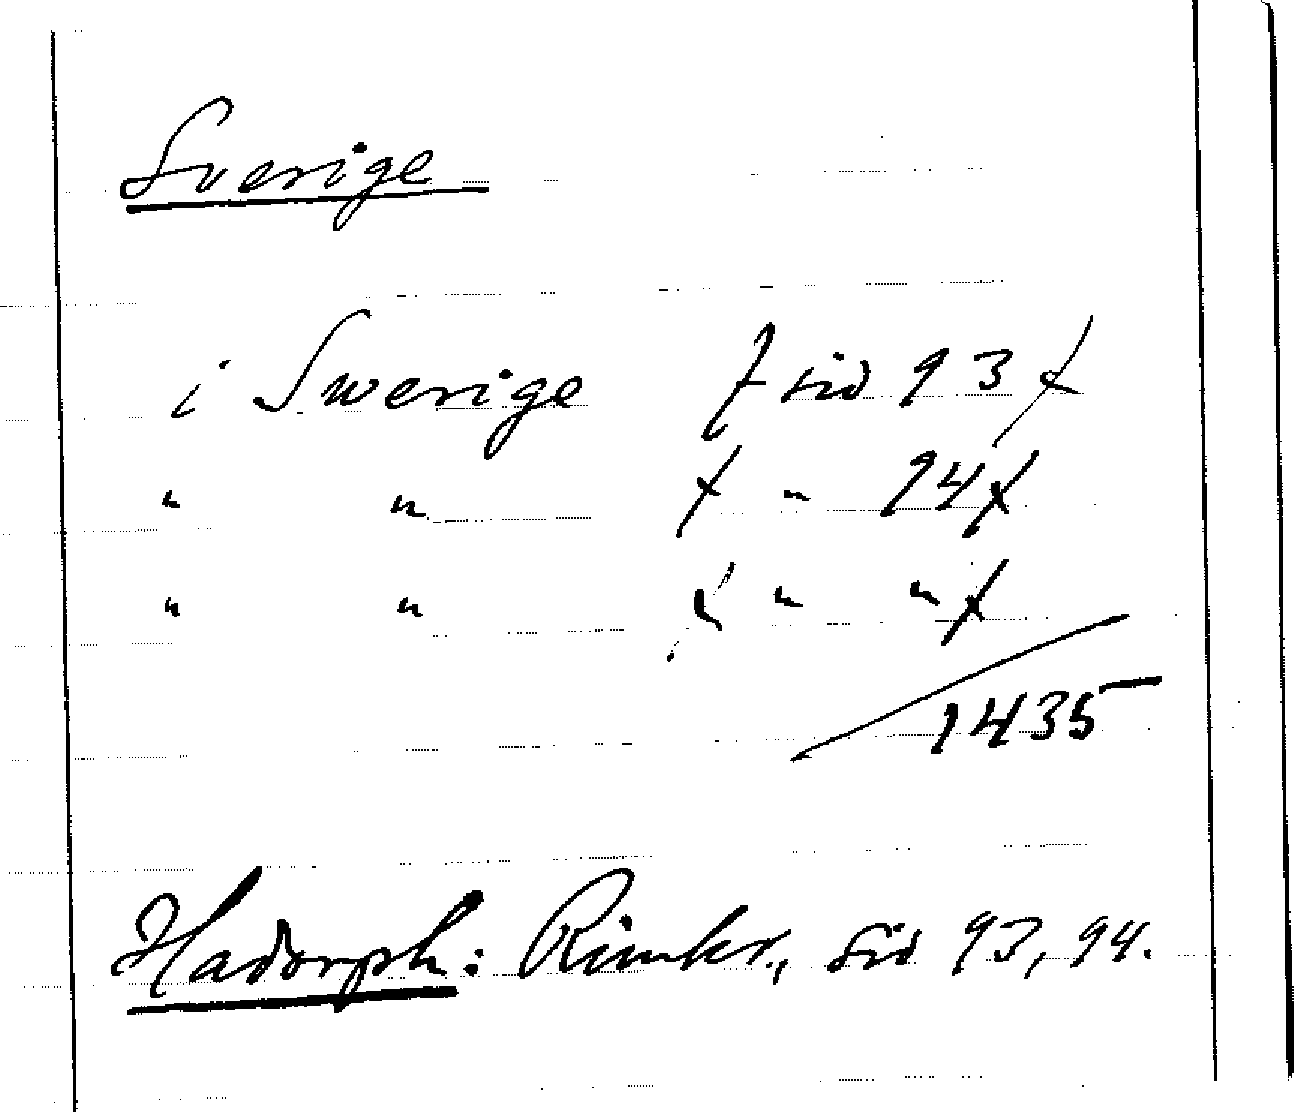 Sverige
i Swerige / sid 93 /
" " / " 94 /
" " / " " /
1435
Hadorph: Rimkr., sid 93, 94.